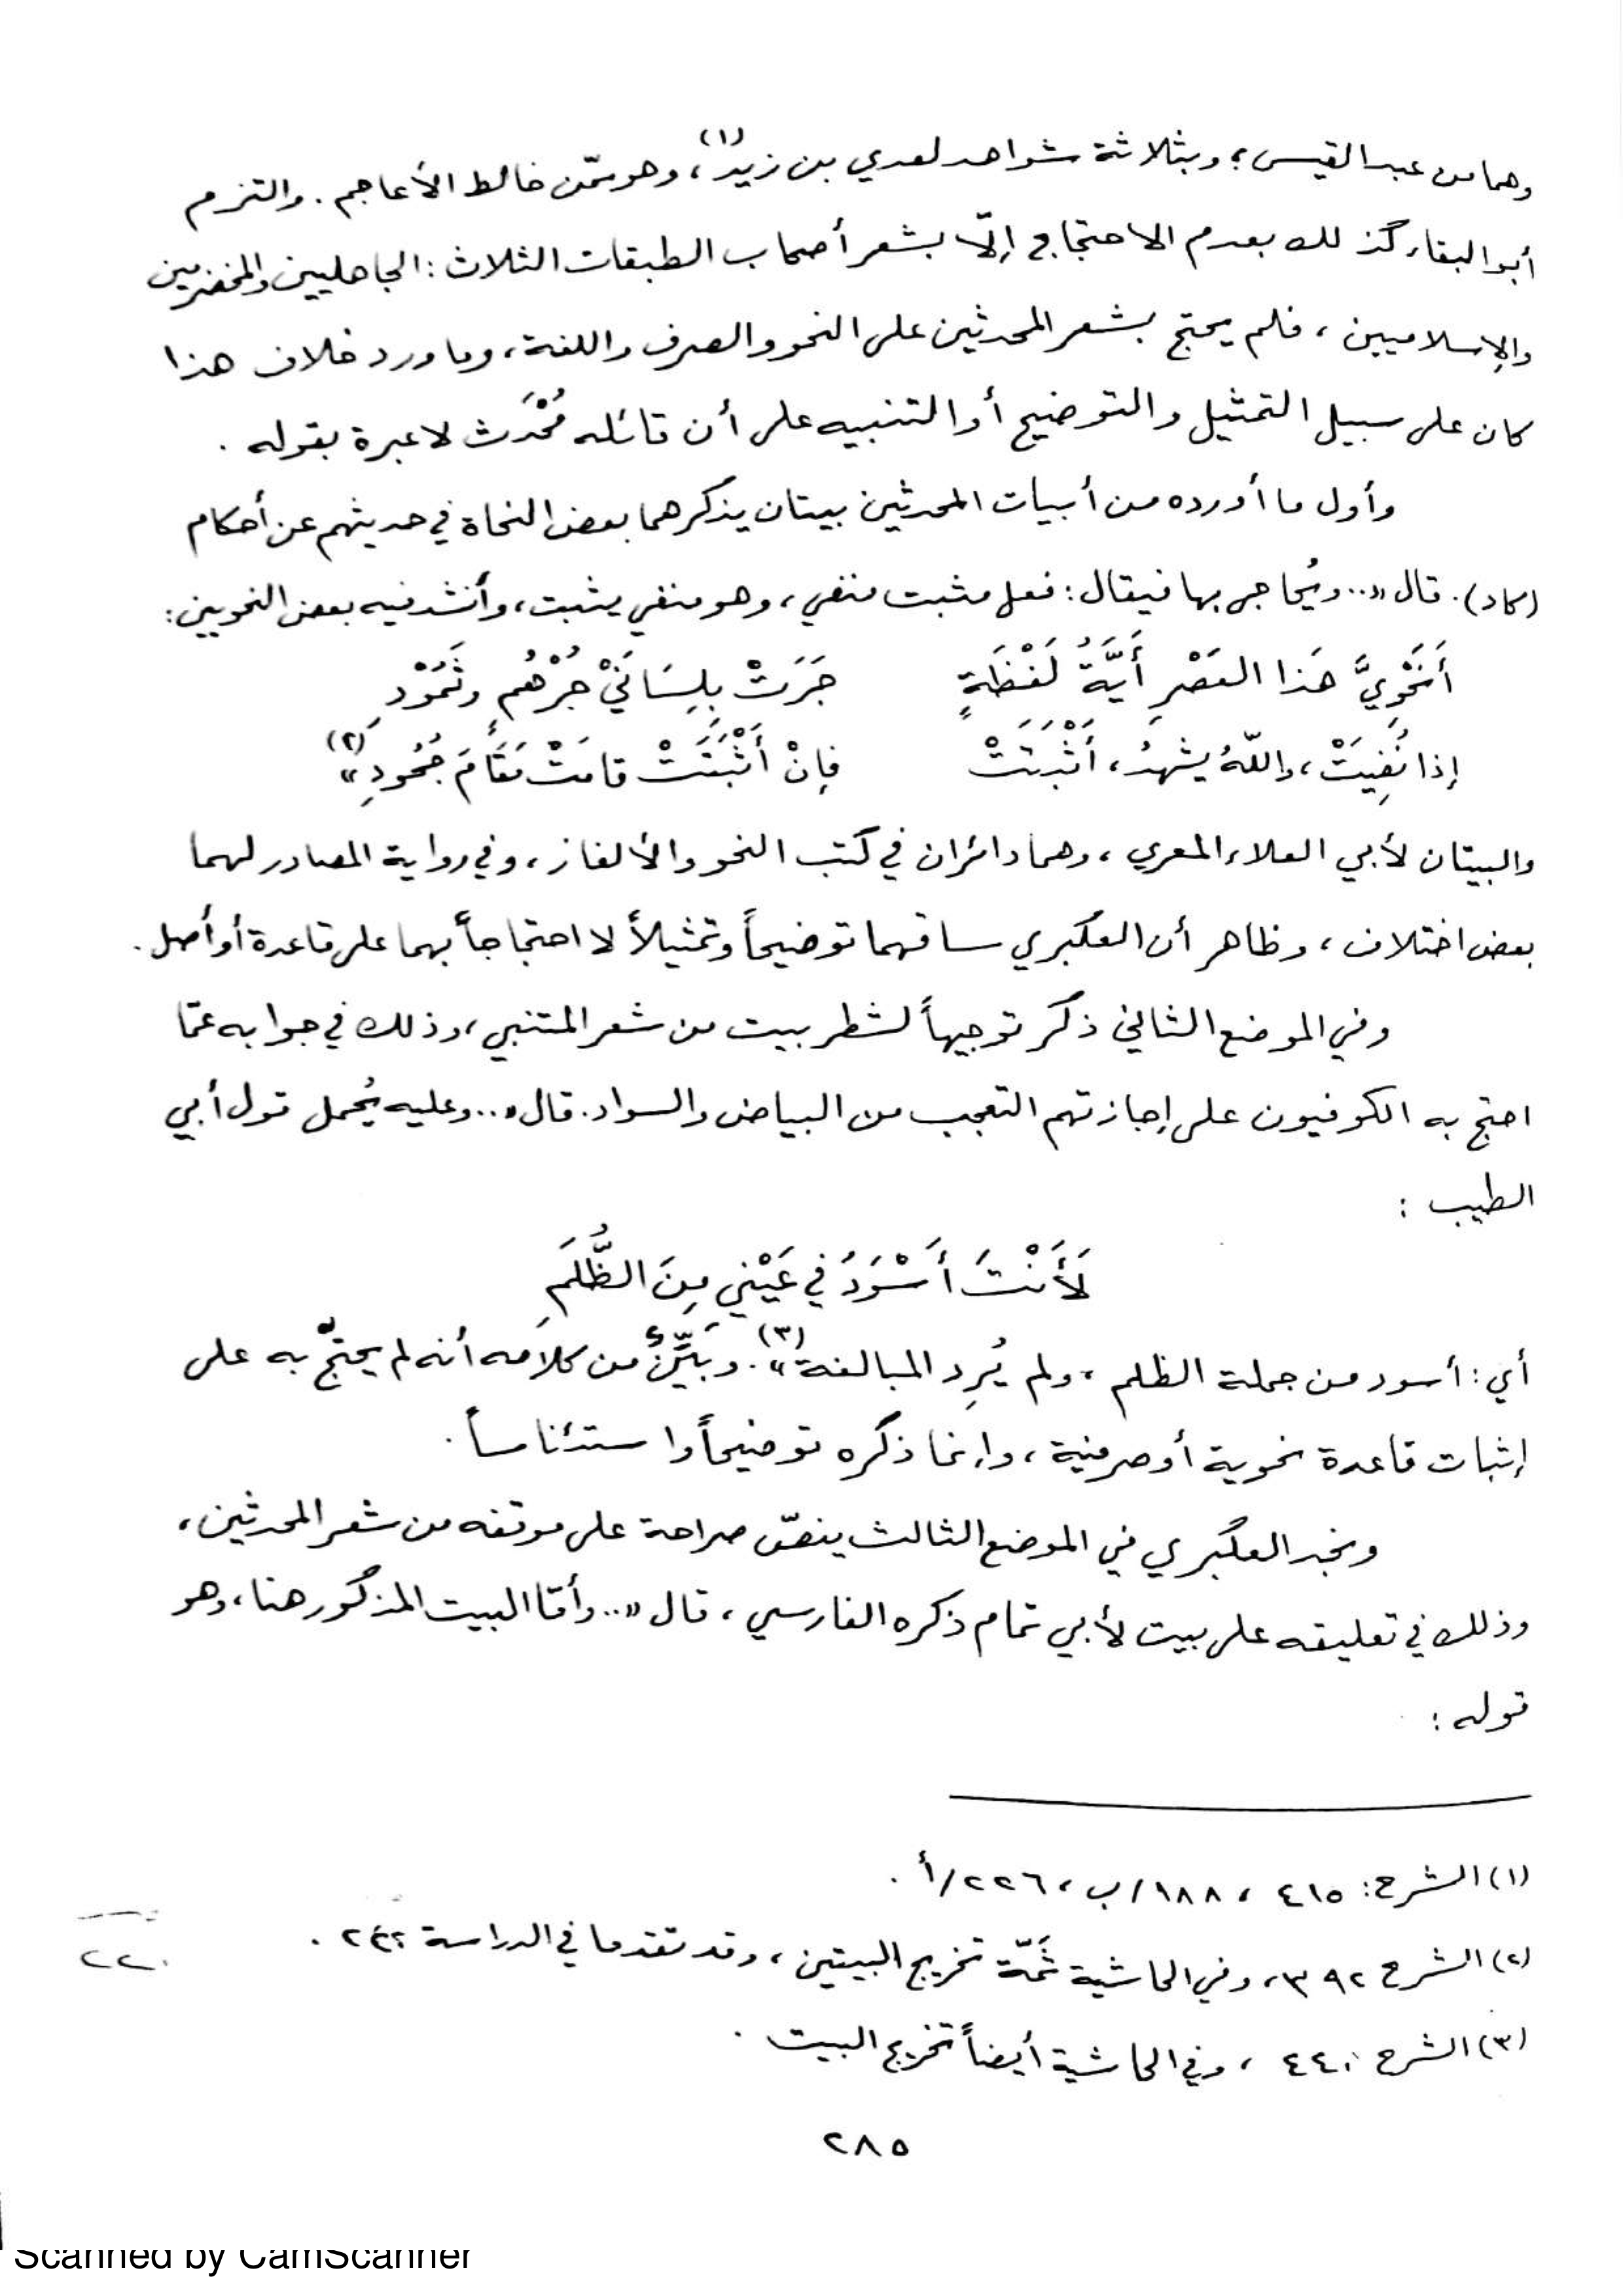 وهما من عبد القيس؛ وبثلاثة شواهد لعدي بن زيد(١)، وهو ممّن خالط الأعاجم. والتزم
أبو البقاء كذلك بعدم الاحتجاج إلّا بشعر أصحاب الطبقات الثلاث: الجاهليين والمخضرمين
والإسلاميين، فلم يحتج بشعر المحدثين على النحو والصرف واللغة، وما ورد خلاف هذا
كان على سبيل التمثيل والتوضيح أو التنبيه على أن قائله مُحْدَث لا عبرة بقوله.
وأول ما أورده من أبيات المحدثين بيتان يذكرهما بعض النحاة في حديثهم عن أحكام
(كاد). قال «.. ويُحاجى بها فيقال: فعل مثبت منفي، وهو منفي يثبت، وأنشد فيه بعض النحويين:
أَنَحْوِيَّ هَذا العَصْرِ أَيَّةُ لَفْظَةٍ جَرَتْ بِلِسَانَيْ جُرْهُمٍ وثَمُوْدِ
إذا نُفِيَتْ، واللهُ يشهدُ، أَثْبَتَتْ فإنْ أَثْبَتَتْ قامَتْ مَقَامَ جُحُودِ»(٢)
والبيتان لأبي العلاء المعري، وهما دائران في كتب النحو والألغاز، وفي رواية المصادر لهما
بعض اختلاف، وظاهر أن العكبري ساقهما توضيحاً وتمثيلاً لا احتجاجاً بهما على قاعدة أو أصل.
وفي الموضع الثاني ذكر توجيهاً لشطر بيت من شعر المتنبي، وذلك في جوابه عمّا
احتج به الكوفيون على إجازتهم التعجب من البياض والسواد. قال «.. وعليه يُحمل قول أبي
الطيب:
لَأَنْتَ أَسْوَدُ في عَيْني مِنَ الظُّلَمِ
أي: أسود من جملة الظلم، ولم يُرِد المبالغة»(٣). وبَيِّنٌ من كلامه أنه لم يحتجّ به على
إثبات قاعدة نحوية أو صرفية، وإنما ذكره توضيحاً واستئناساً.
ونجد العكبري في الموضع الثالث ينصّ صراحة على موقفه من شعر المحدثين،
وذلك في تعليقه على بيت لأبي تمام ذكره الفارسي، قال «.. وأمّا البيت المذكور هنا، وهو
قوله:
(١) الشرح: ٤١٥، ١٨٨/ب، ٢٢٦/أ.
(٢) الشرح ٣٩٢، وفي الحاشية ثَمّة تخريج البيتين، وقد تقدما في الدراسة ٢٤٢.
٢٢٠
(٣) الشرح ٤٤٠، وفي الحاشية أيضاً تخريج البيت.
٢٨٥
Scanned by CamScanner